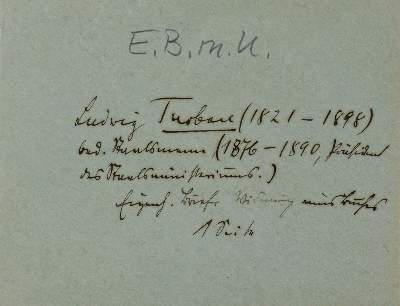 E.B.m.U.
Ludwig Turban (1821 – 1898)
bad. Staatsmann (1876 – 1890, Präsident
des Staatsministeriums.)
Eigenh. Briefe Widmung eines Buches
1 Seite